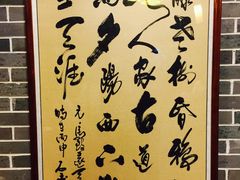 藤老樹昏鴉
人家古道
夕陽西下
天涯
元馬致遠
丙申